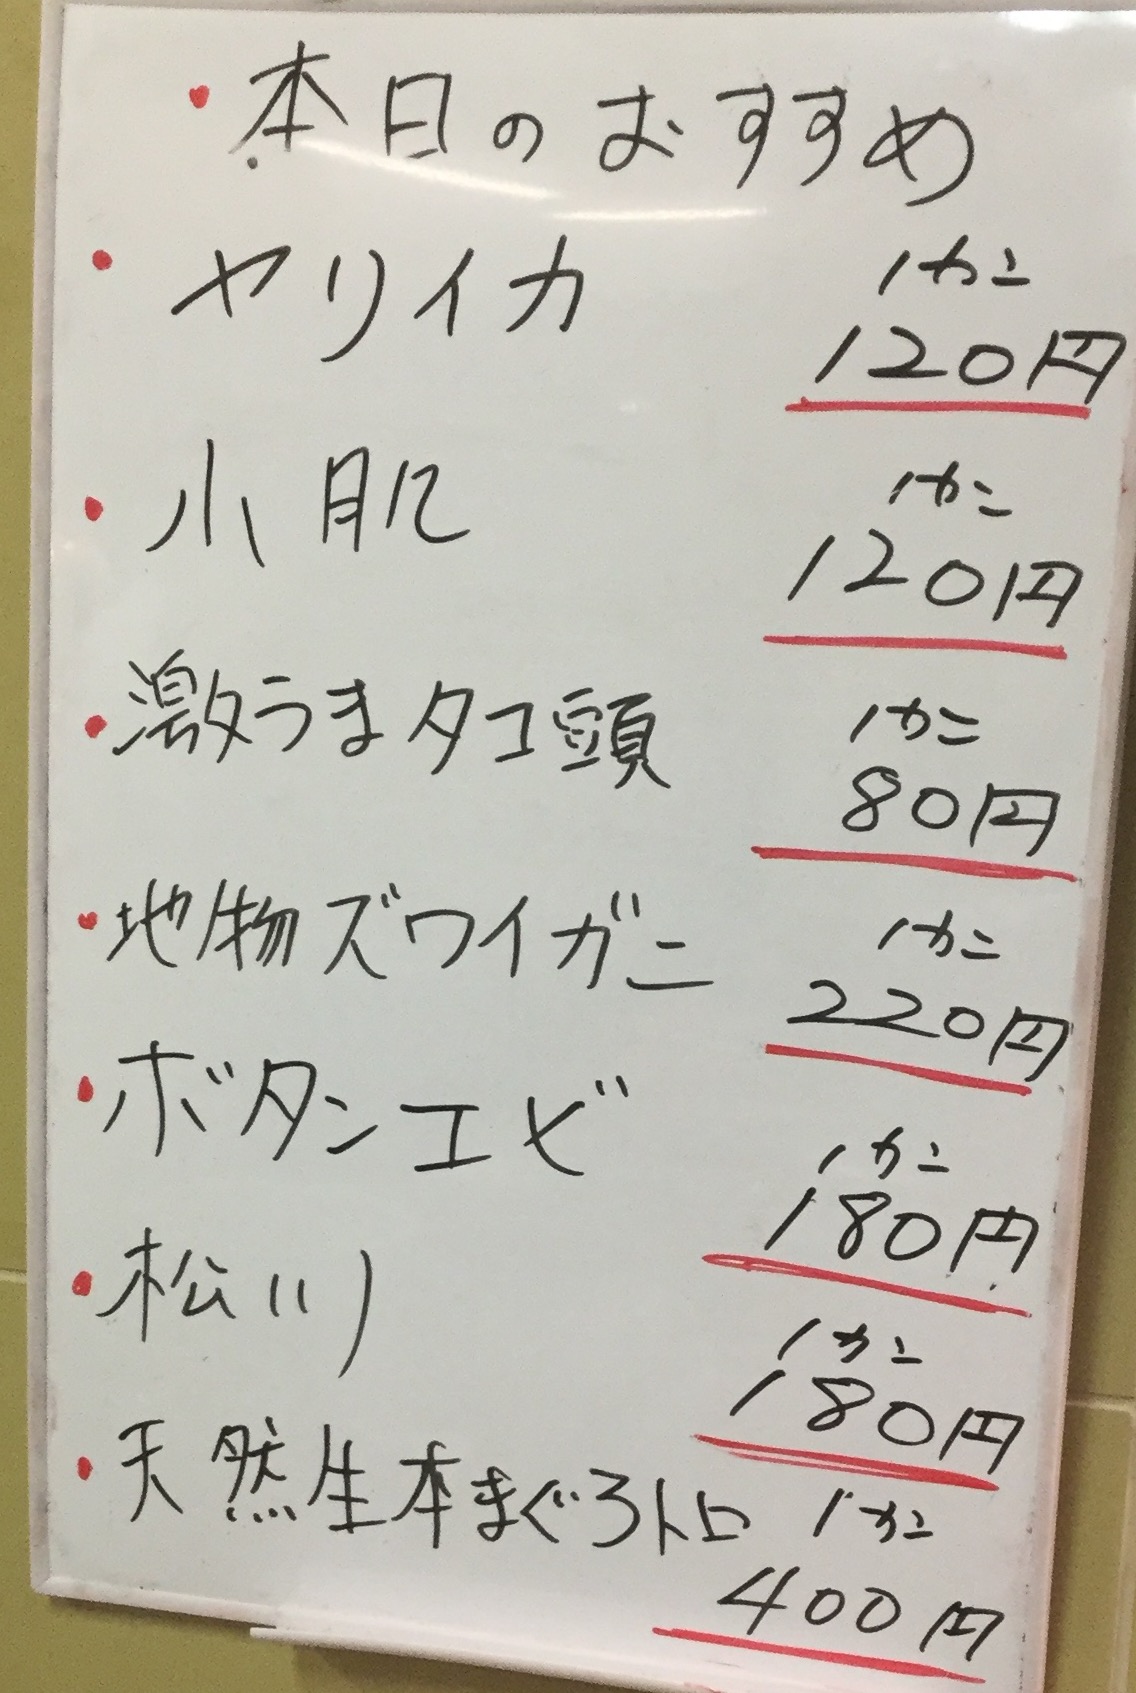 ・本日のおすすめ
・ヤリイカ 1カン
120円
・小肌 1カン
120円
・激うまタコ頭 1カン
80円
・地物ズワイガニ 1カン
220円
・ボタンエビ 1カン
180円
・松川 1カン
180円
・天然生本まぐろトロ 1カン
400円